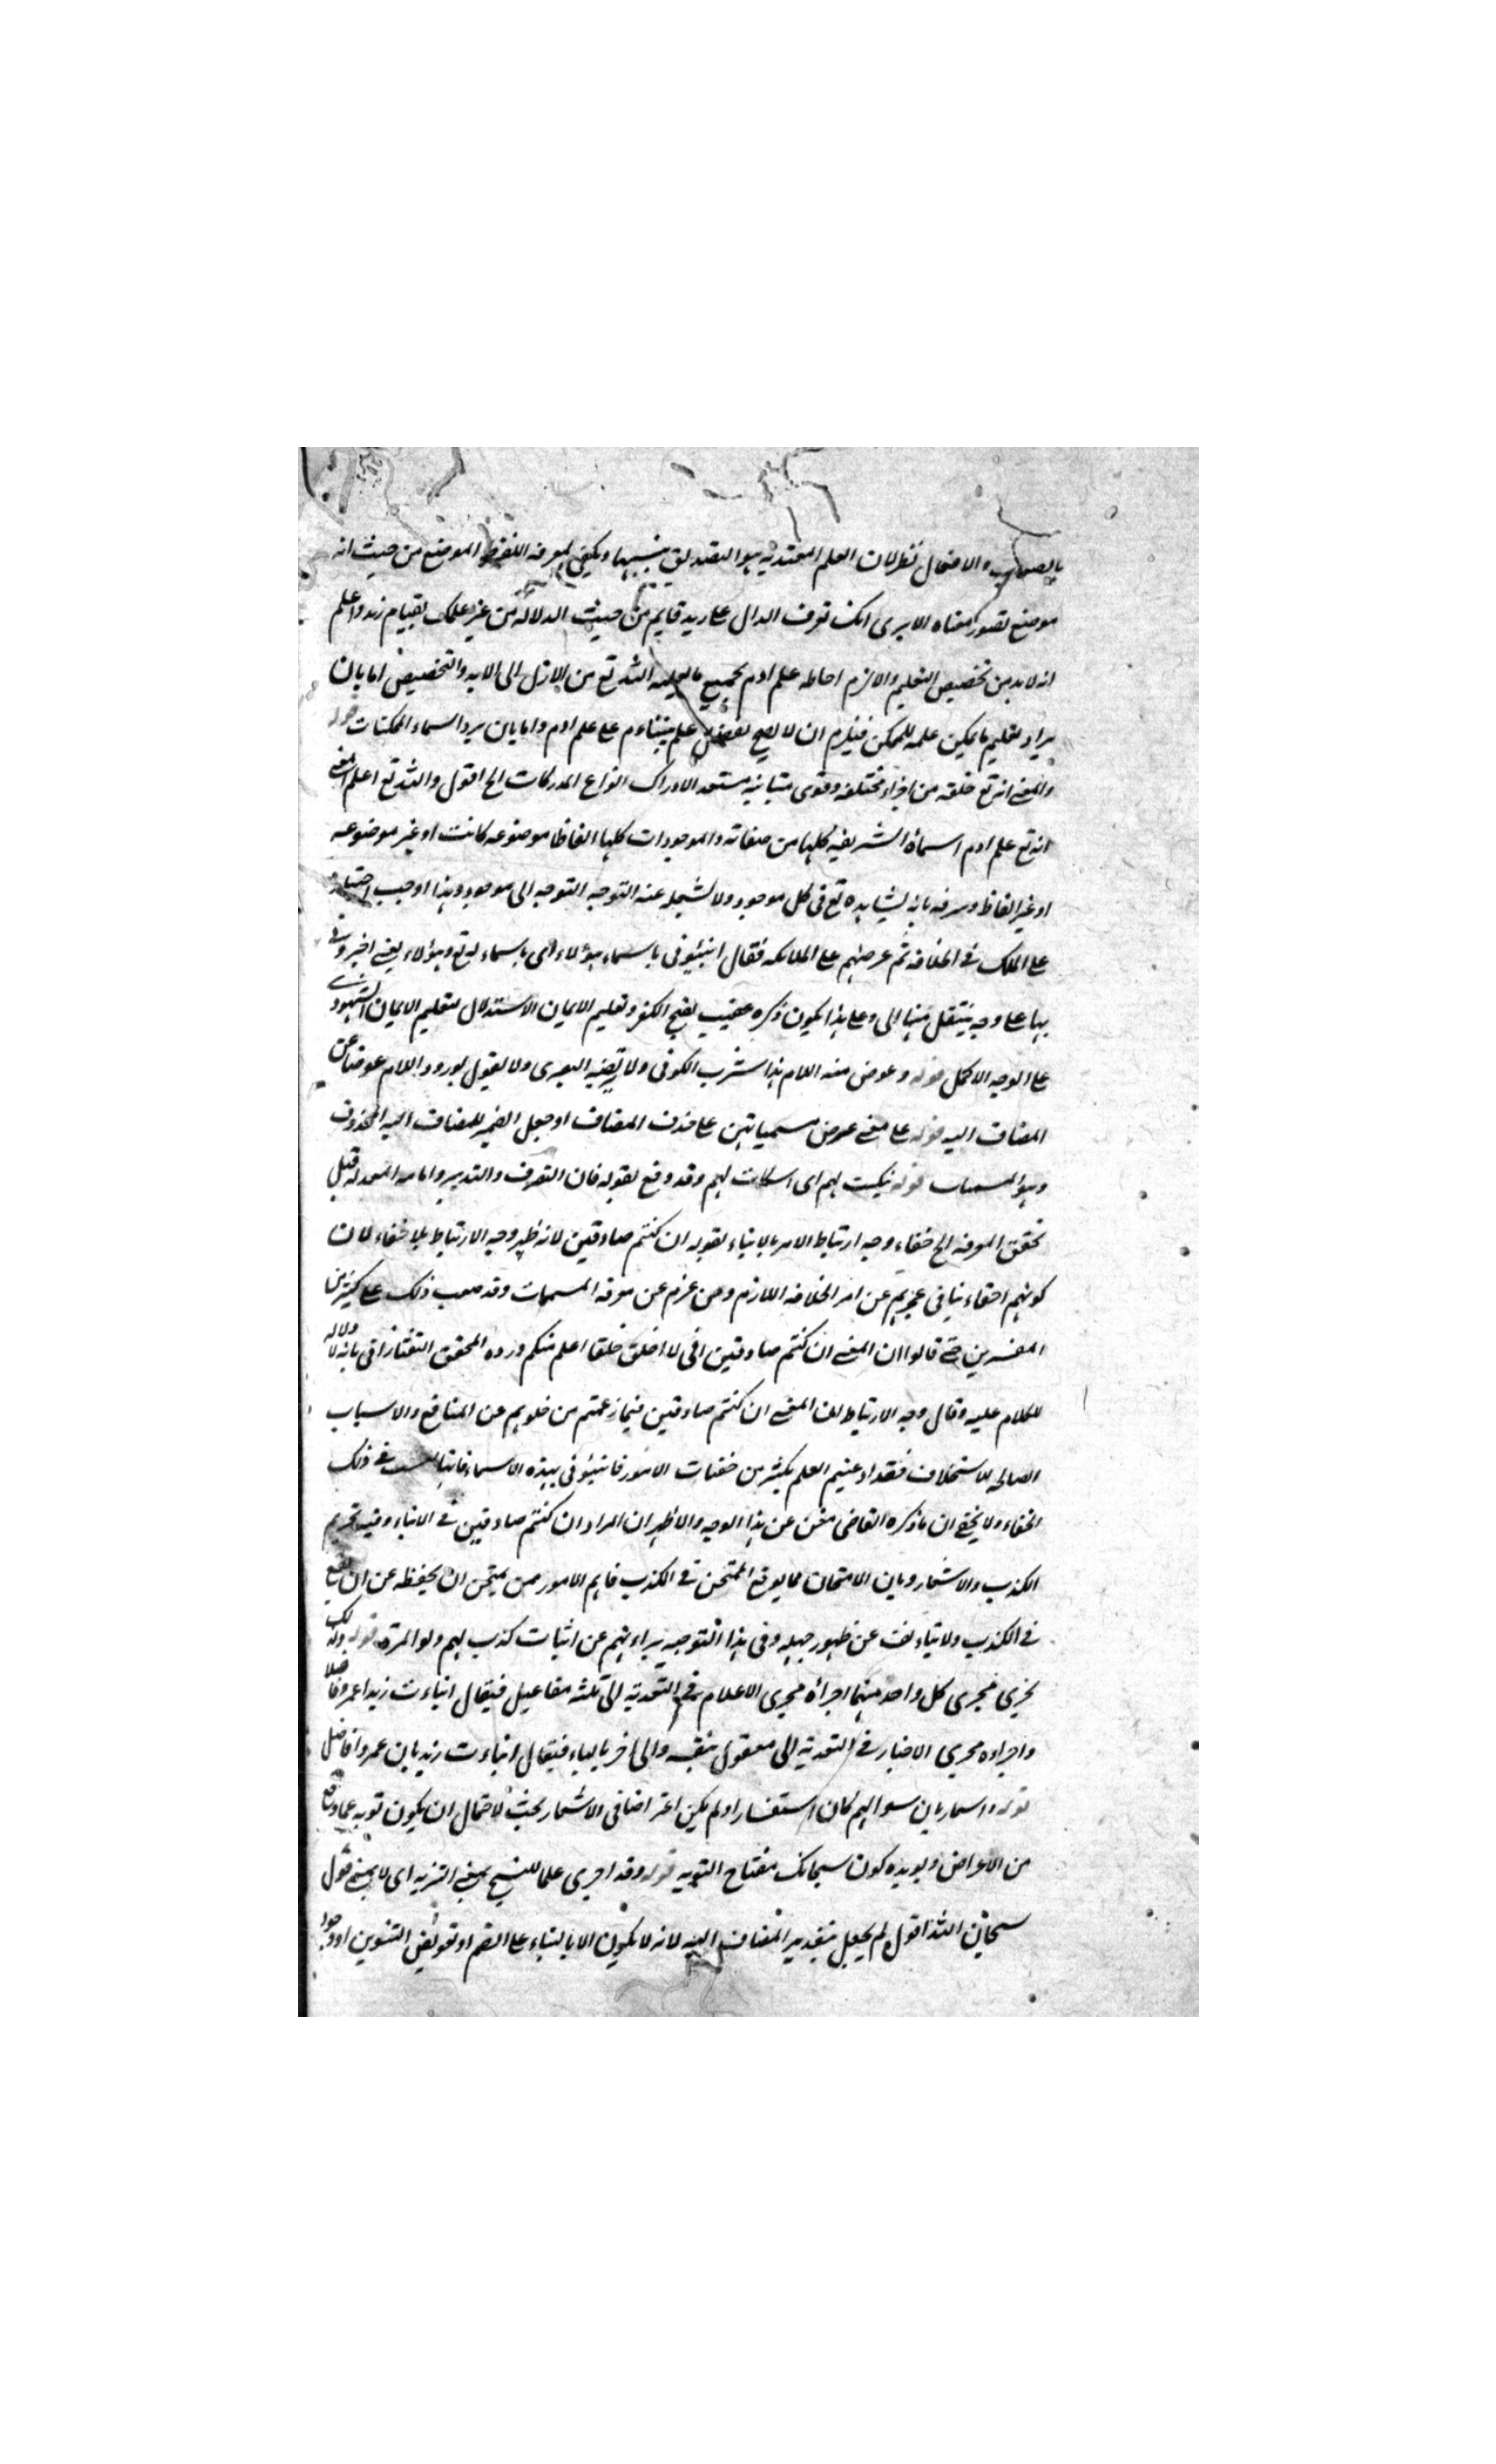 الاحتمال نظر لان العلم المعتد به هو التصديق بنسبها ويكفي لمعرفة اللفظ الموضوع من حيث انه
موضوع تصور معناه الا يرى انك تعرف الدال على زيد قايم من حيث الدلالة من غير علمك بقيام زيد واعلم
انه لا بد من تخصيص التعليم والا لزم احاطة علم ادم بجميع ما يعلمه الله تع من الازل الى الابد والتخصيص اما بان
يراد تعليم ما يمكن علمه للممكن فيلزم ان لا يصح تفضيل علم نبينا عم على علم ادم واما بان يرد اسماء الممكنات قوله
والمعنى انه تع خلقه من اجزاء مختلفة وقوى متباينة مستعد الادراك انواع المدركات الخ اقول والله تع اعلم المعنى
انه تع علم ادم اسماؤه الشريفة كلها من صفاته والموجودات كلها الفاظا موضوعه كانت او غير موضوعه
او غير الفاظ وعرفه بانه يشاهده تع في كل موجود ولا يشغله عنه التوجه التوجه الى موجود وبهذا اوجب اختياره
على الملك في الخلافه ثم عرضهم على الملائكه فقال انبئوني باسماء هؤلاء اي باسماء له تع وهؤلاء يعني اخبروني
بها على وجه ينتقل منها الى وعلى هذا يكون ذكره عقيب تقبيح الكفر وتعليم الايمان الاستدلال لتعليم الايمان الشهودي
على الوجه الاكمل قوله وعوض عنه اللام هذا مشرب الكوفي ولا يرتضيه البصري ولا يقول بورود اللام عوضا عن
المضاف اليه قوله على معنى عرض مسمياتهن على حذف المضاف او جعل الضمير للمضاف اليه المحذوف
وهو المسميات قوله تبكيت لهم اي اسكات لهم وقد وقع بقوله فان التصرف والتدبير واقامه المعدله قبل
تحقق المعرفه الخ خفاء وجه ارتباط الامر بالانباء بقوله ان كنتم صادقين لانه ظهر وجه الارتباط بلا خفاء لان
كونهم احقاء ينافي عجزهم عن امر الخلافه اللازم من عجزهم عن معرفه المسميات وقد صعب ذلك على كثير من
المفسرين حتى قالوا ان المعنى ان كنتم صادقين اني لا اخلق خلقا اعلم منكم ورده المحقق التفتازاني بانه لا دلاله
للكلام عليه وقال وجه الارتباط ان المعنى ان كنتم صادقين فيما زعمتم من خلوهم عن المنافع والاسباب
الصالحه للاستخلاف فقد ادعيتم العلم بكثير من خفيات الامور فانبئوني بهذه الاسماء فانها ليست في ذلك
الخفاء ولا يخفى ان ما ذكره القاضي مغن عن هذا الوجه والاظهر ان المراد ان كنتم صادقين في الانباء وفيه تحريم
الكذب والاشعار وبان الامتحان مما يوقع الممتحن في الكذب فاهم الامور ممن يمتحن ان يحفظه عن ان يقع
في الكذب ولا يتانف عن ظهور جهله وفي هذا التوجيه براءتهم عن اثبات كذب لهم ولو المرة قوله ولذلك
يجري مجرى كل واحد منهما اجراؤه مجرى الاعلام في التعديه الى ثلثه مفاعيل فيقال انباءت زيدا عمروا فاضلا
واجراءه مجرى الاخبار في التعديه الى مفعول بنفسه والى اخر بالباء فيقال انباءت زيد بان عمروا فاضل
قوله واشعار بان سوالهم كان استفسارا ولم يكن اعتراضا في الاشعار بحث لاحتمال ان يكون توبه عما وقع
من الاعراض ويويده كون سبحانك مفتاح التوبه قوله وقد اجرى علما للتسبيح بمعنى التنزيه اي لا بمعنى قول
سبحان الله اقول لم يجعل بتقدير المضاف اليه لانه لا يكون الا بالبناء على الضم او تعويض التنوين او وجود